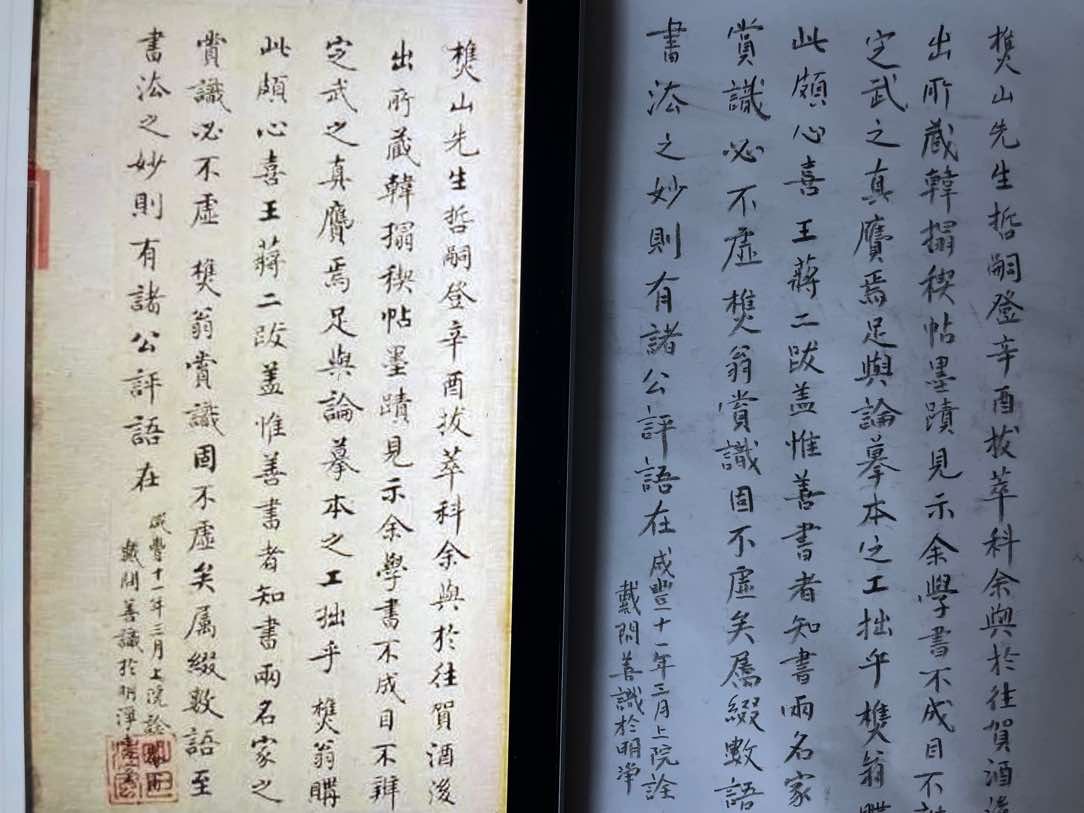 樵山先生哲嗣登辛酉拔萃科余與於往賀酒後
出所藏韓搨稧帖墨蹟見示余學書不成目不辨
定武之真贋焉足與論摹本之工拙乎樵翁購
此頗心喜王蔣二跋蓋惟善書者知書兩名家之
賞識必不虛樵翁賞識固不虛矣属綴數語至
書法之妙則有諸公評語在
咸豐十一年三月上院
戴問善識於明淨
樵山先生哲嗣登辛酉拔萃科余與於往賀酒後
出所藏韓搨稧帖墨蹟見示余學書不成目不
定武之真贋焉足與論摹本之工拙乎樵翁購
此頗心喜王蔣二跋蓋惟善書者知書兩名家
賞識必不虛樵翁賞識固不虛矣屬綴數語
書法之妙則有諸公評語在咸豐十一年三月上院詮
戴問善識於明净